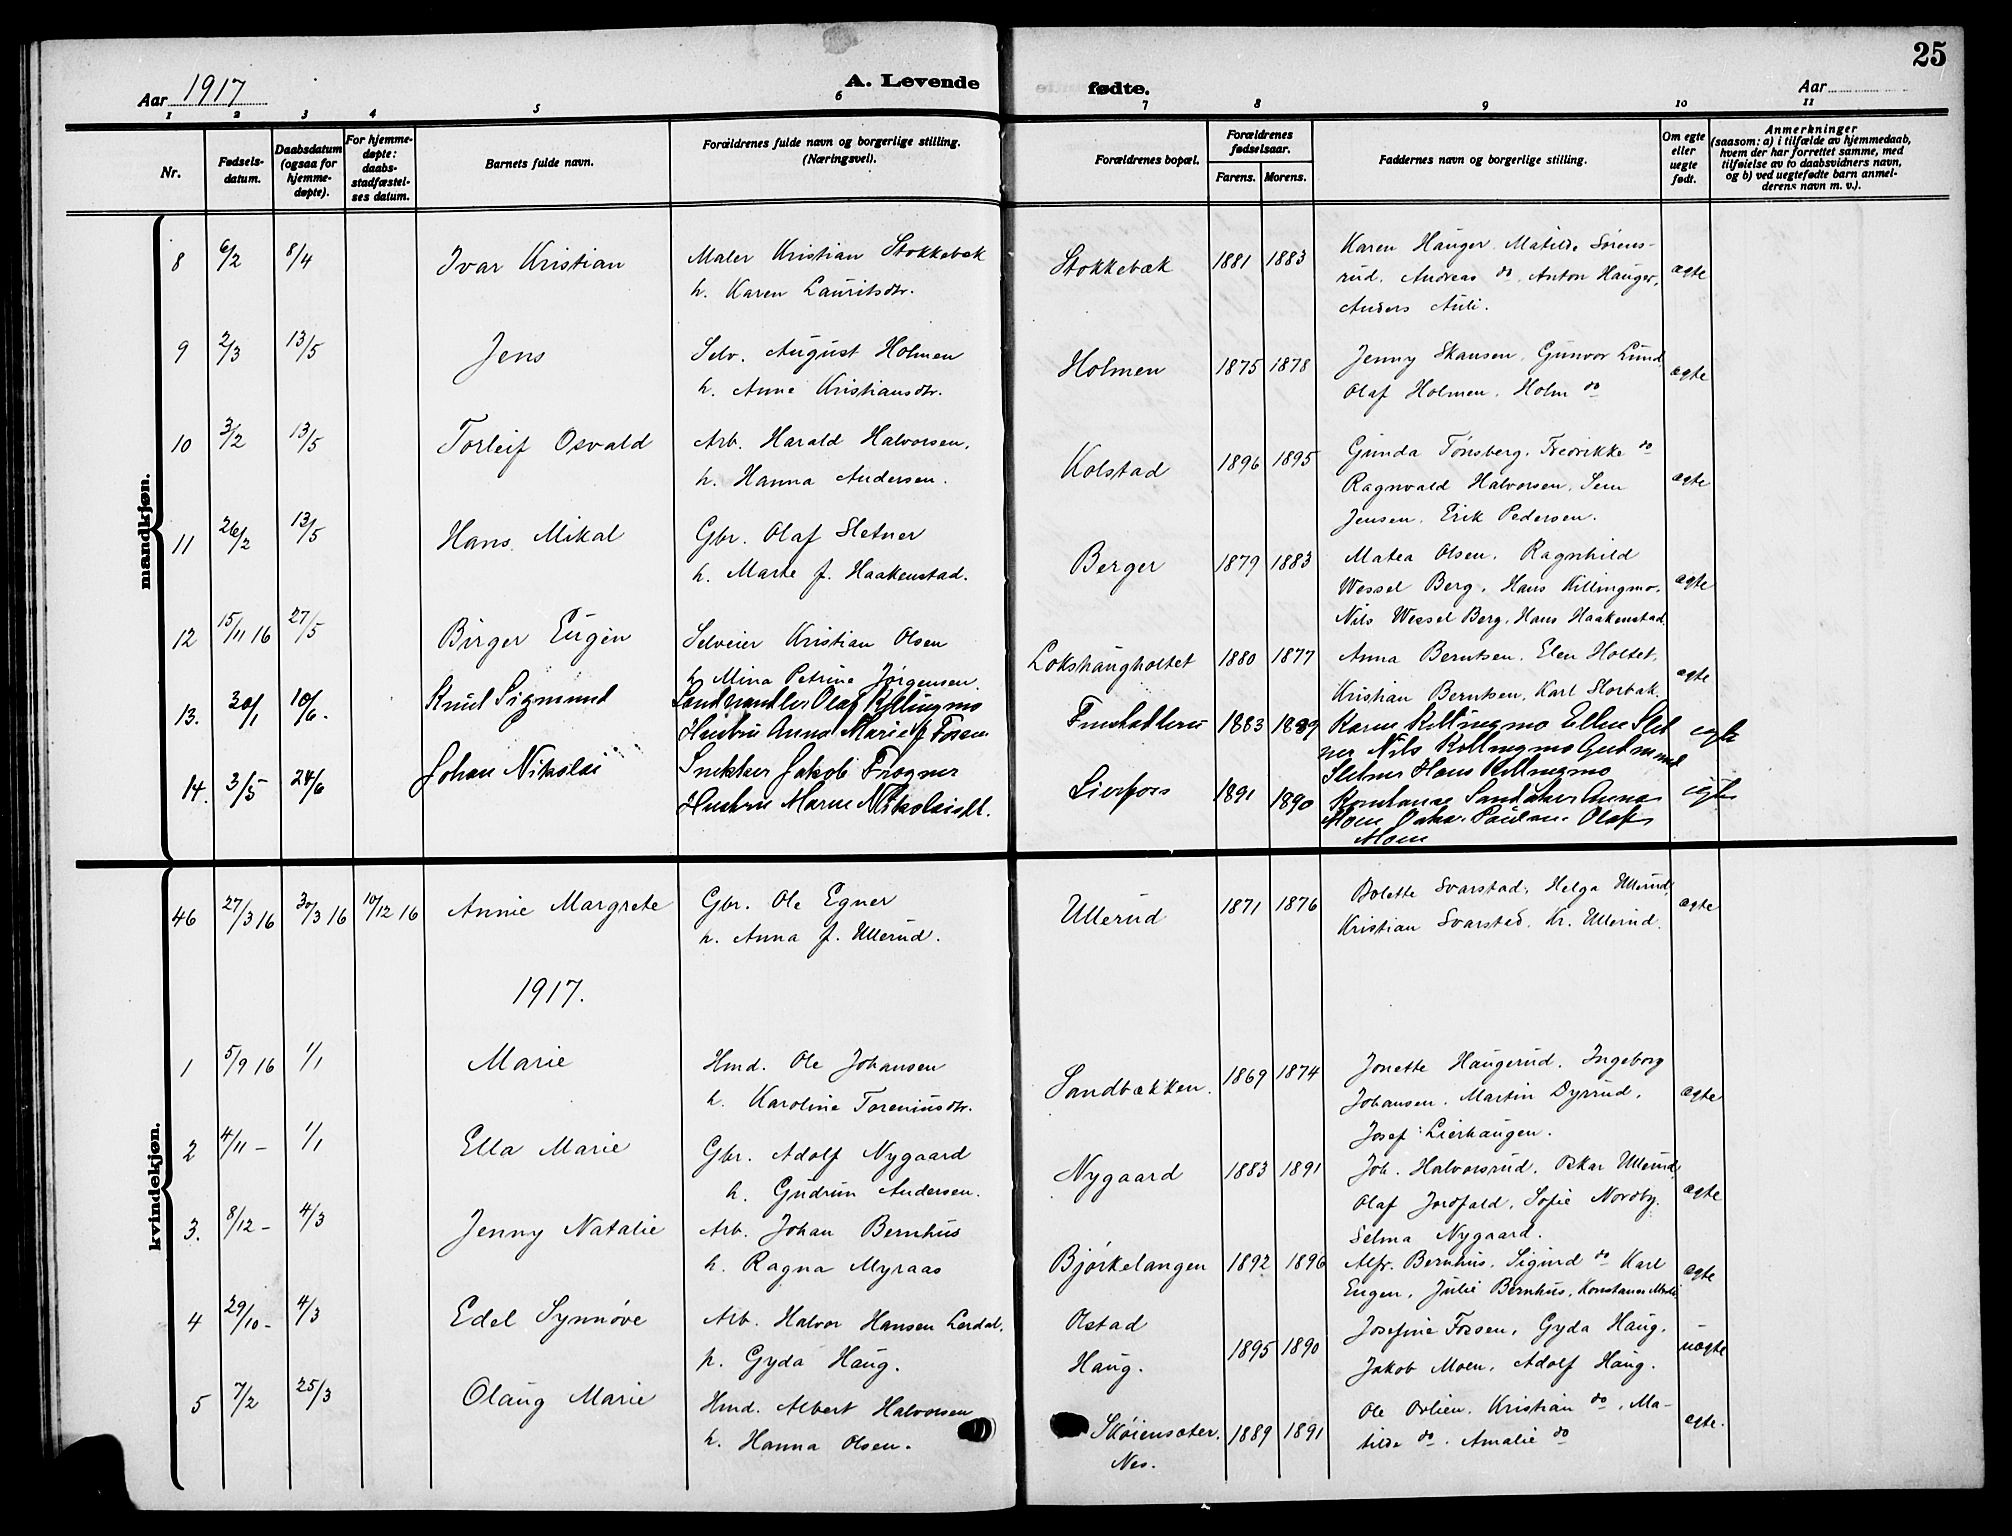 25
Aar 1917
A. Levende fødte.
Aar
1 2 3 4 5 6 7 8 9 10 11
Nr.
Fødsels-
datum.
Daabsdatum
(ogsaa for
hjemme-
døpte).
For hjemme-
døpte:
daabs-
stadfæstel-
ses datum.
Barnets fulde navn.
Forældrenes fulde navn og borgerlige stilling.
(Næringsvei).
Forældrenes bopæl.
Forældrenes
fødselsaar.
Farens. Morens.
Faddernes navn og borgerlige stilling.
Om egte
eller
uegte
født.
Anmerkninger
(saasom: a) i tilfælde av hjemmedaab,
hvem der har forrettet samme, med
tilføielse av to daabsvidners navn,
og b) ved uegtefødte barn anmel-
derens navn m. v.).
mandkjøn.
8 6/2 8/4 Ivar Kristian Maler Kristian Stokkebæk
h. Karen Lauritsdtr.
Stokkebæk 1881 1883 Karen Hauger. Matilde Sørens-
rud. Andreas do. Anton Hauger,
Anders Auli.
ægte
9 2/3 13/5 Jens Selv. August Holmen
h. Anne Kristiansdtr.
Holmen 1875 1878 Jenny Skansen, Gunvor Lund
Olaf Holmen. Holm do
ægte
10 3/2 13/5 Torleif Osvald Arb. Harald Halvorsen,
h. Hanna Andersen.
Kolstad 1896 1895 Gunda Tønsberg. Fredrikke do
Ragnvald Halvorsen, Sem
Jensen. Erik Pedersen.
ægte
11 26/2 13/5 Hans Mikal Gbr. Olaf Sletner
h. Marte f. Haakenstad.
Berger 1879 1883 Matea Olsen. Ragnhild
Wessel Berg. Hans Killingmo.
Nils Wessel Berg. Hans Haakenstad
ægte
12 15/11 16 27/5 Birger Eugen Selveier Kristian Olsen
h. Mina Petrine Jørgensen.
Lokshaugholtet 1880 1877 Anna Berntsen. Elen Holtet,
Kristian Berntsen. Karl Storbak.
ægte
13. 20/1 10/6. Knut Sigmund Landhandler Olaf Killingmo
Hustru Anna Marie f Fosen
1883 1889 Karen Killingmo Ellen Slet
ner Nils Killingmo Gudmund
Sletner Hans Killingmo
egte
14. 3/5 24/6 Johan Nikolai Snekker Jakob Frogner
Hustru Maren Nikolaidt.
Lierfoss 1891 1890 Konstanse Sandaker Anna
Moen Oskar Paulsen Olaf
Moen
egte
kvindekjøn.
46 27/3 16 30/3 16 10/12 16 Annie Margrete Gbr. Ole Egner
h. Anna f. Ullerud.
Ullerud 1871 1876 Bolette Svarstad, Helga Ullerud,
Kristian Svarstad. Kr. Ullerud.
ægte
1917.
1 5/9 16 1/1 Marie Hmd. Ole Johansen
h. Karoline Toreniusdtr.
Sandbækken. 1869 1874 Jonette Haugerud. Ingeborg
Johansen. Martin Dyrrud,
Josef Lierhaugen.
ægte
2 4/11 – 1/1 Ella Marie Gbr. Adolf Nygaard
h. Gudrun Andersen.
Nygaard 1883 1891 Joh. Halvorsrud, Oskar Ullerud,
Olaf Jordfald, Sofie Nordby.
Selma Nygaard.
ægte
3. 8/12 – 4/3 Jenny Natalie Arb. Johan Bernhus
h. Ragna Myraas
Bjørkelangen 1892 1896 Alfr. Bernhus. Sigurd do Karl
Eugen, Julie Bernhus, Konstanse
ægte
4 29/10 – 4/3 Edel Synnøve Arb. Halvor Hansen Lerdal.
p. Gyda Haug.
Olstad
Haug.
1895 1890 Josefine Fossen, Gyda Haug.
Jakob Moen, Adolf Haug.
uægte
5 7/2 25/3 Olaug Marie Hmd. Albert Halvorsen
h. Hanna Olsen.
Skøiensæter,
Nes.
1889 1891 Ole Ovlien. Kristian do, Ma-
tilde do. Amalie do
ægte.